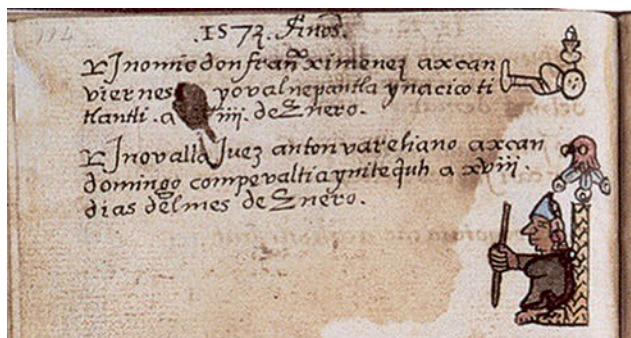 114
.1572. Años.
Inomic don franco ximenez axcan
viernes yovalnepantla ynacico ti
tlantli. a iiii. de Enero.
Inovalla Juez anton vareliano axcan
domingo compevaltia ynitequh a xviii
dias delmes de Enero.